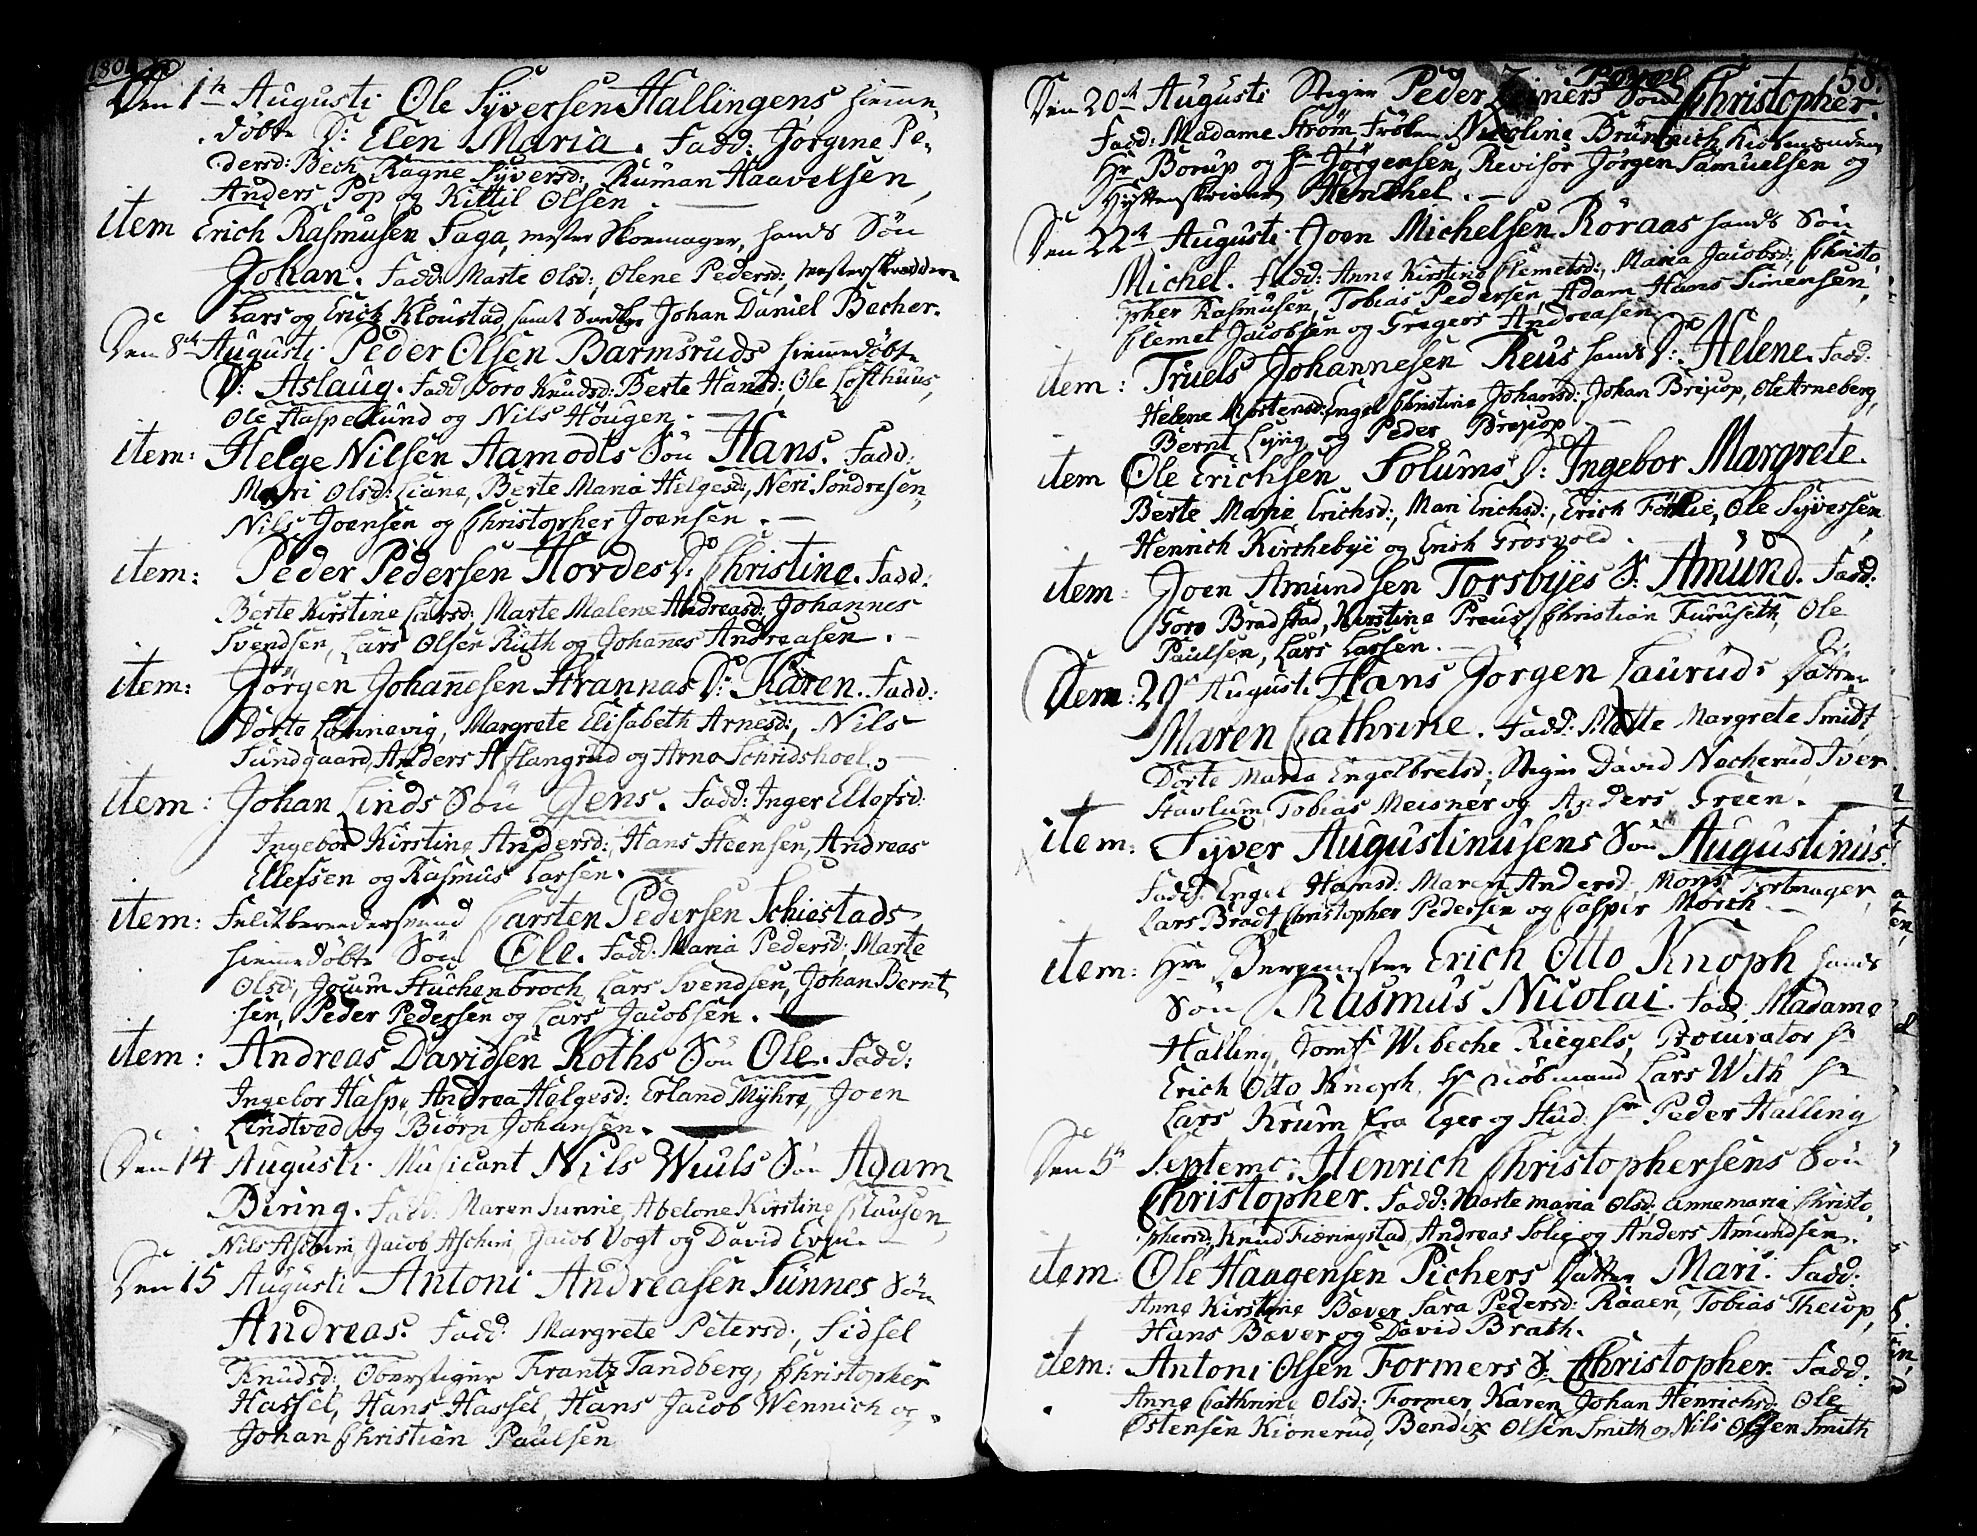 180
Den 1te Augusti Ole Syversen Hallingens hiemme
döbte D: Elen Maria. Fadd: Jörgine Pe-
dersd: Bech, Ragne Syversd:, Ruman Haavelsen,
Anders Pop og Kittil Olsen.
item Erich Rasmusen Faga, mester Skoemager, hands Sön
Johan. Fadd: Marte Olsd:, Olene Pedersd:,
Lars og Erich Kloustad, samt Johan Daniel Becher.
Den 8de Augusti Peder Olsen Barmsruds hiemmedöbte
D: Aslaug. Fadd: Goro Knudsd: Berte Hansd:, Ole Lofthuus,
Ole Haspelund og Nils Hougen.
item: Helge Nilsen Aamodts Sön Hans. Fadd:
Mari Olsd: Liane, Berte Maria Helgesd:, Neri Sondresen,
Nils Joensen og Christopher Joensen.
item: Peder Pedersen Hordes D: Christine. Fadd:
Berte Kirstine Larsd: Marte Malene Andreasd: Johannes
Svendsen, Lars Olsen Ruth og Johannes Andreasen.
item: Jörgen Johannesen Strannas D: Karen. Fadd:
Dorte Lannevig, Margrete Elisabeth Arnesd:, Nils
Sundgaard, Anders Aflangrud og Arne Schridshoel.
item: Johan Linds Sön Jens. Fadd: Inger Ellefsd:
Ingebor Kirstine Andersd:, Hans Steensen, Andreas
Ellefsen og Rasmus Larsen.
item: Feldtberedersvend Carsten Pedersen Schiestads
hiemmedöbte Sön Ole. Fadd: Maria Pedersd:, Marte
Olsd:, Jocum Stuchenbroch, Lars Svendsen, Johan Bernt
sen, Peder Pedersen og Lars Jacobsen.
item: Andreas Davidsen Roths Sön Ole. Fadd:
Ingebor Haspe, Andrea Helgesd: Erland Myhre, Joen
Lindtved og Biörn Johansen.
Den 14 Augusti. Musicant Nils Wiuls Sön Adam
Biring. Fadd: Maren Sunnie, Abelone Kirstine Clausen,
Nils Aschim, Jacob Aschim, Jacob Vogt og David Evju.
Den 15 Augusti Antoni Andreasen Sunnes Sön
Andreas. Fadd: Margrete Petersd:, Sidsel
Knudsd: Oberstiger Frantz Tandberg, Christopher
Hassel, Hans Hassel, Hans Jacob Wennich og
Johan Christian Paulsen
58.
Den 20de Augusti Stiger Peder Zeiners Sön Christopher.
Fadd: Madame Ström, Fröken Nicoline Brünnich,
Hr Borup og Hr Jörgensen, Revisor Jörgen Samuelsen og
Hytteskriver Henchel.
Den 22de Augusti Joen Michelsen Röraas hands Sön
Michel. Fadd: Anne Kirstine Clemetsd:, Maria Jacobsd:, Christo
pher Rasmusen, Tobias Pedersen, Adam Hans Simensen,
Clemet Jacobsen og Gregers Andreasen.
item: Truels Johannesen Reus hands D: Helene. Fadd:
Helene Mortensd: Engel Christine Johansd:, Johan Brejop, Ole Arneberg,
Bernt Lyng og Peder Brejop.
item Ole Erichsen Solums D: Ingebor Margrete.
Berte Marie Erichsd:, Mari Erichsd:, Erich Förlie, Ole Syversen,
Henrich Kirchebye og Erich Grosvold.
item: Joen Amundsen Torsbyes S: Amund. Fadd:
Goro Bradstad, Kirstine Preus, Christian Furuseth, Ole
Paulsen, Lars Larsen.
Item: 29de Augusti Hans Jörgen Lauruds Datter
Maren Cathrine. Fadd: Mette Margrete Smidt,
Dorte Maria Engelbretsd:, Stiger David Nacherud, Iver
Stavlum, Tobias Meisner og Anders Green.
item: Syver Augustinusens Sön Augustinus.
Fadd: Engel Hansd: Maren Andersd: Mons Fortmager,
Lars Bradt, Christopher Pedersen og Casper Morch.
item: Hr Bergmester Erich Otto Knoph hands
Sön Rasmus Nicolai. Fad: Madame
Halling, Jomf: Wibeche Riegels, Procurator Hr
Erich Otto Knoph, Hr Kiöbmand Lars With Hr
Lars Krum fra Eger og Stud. Hr Peder Halling
Den 5te Septembr: Henrich Christophersens Sön
Christopher. Fadd: Marte maria Olsd: annemaria Christo
phersd:, Knud Fieringstad, Andreas Solie og Anders Amundsen.
item: Ole Haagensen Pichers Datter Mari. Fadd:
Anne Kirstine Bæver, Sara Pedersd: Raaen, Tobias Theiop,
Hans Bæver og David Brath.
item: Antoni Olsen Formers S: Christopher. Fadd:
Anne Cathrine Olsd: Former, Karen Johan Henrichsd: Ole
Östensen Kionerud, Bendix Olsen Smith og Nils Olsen Smith